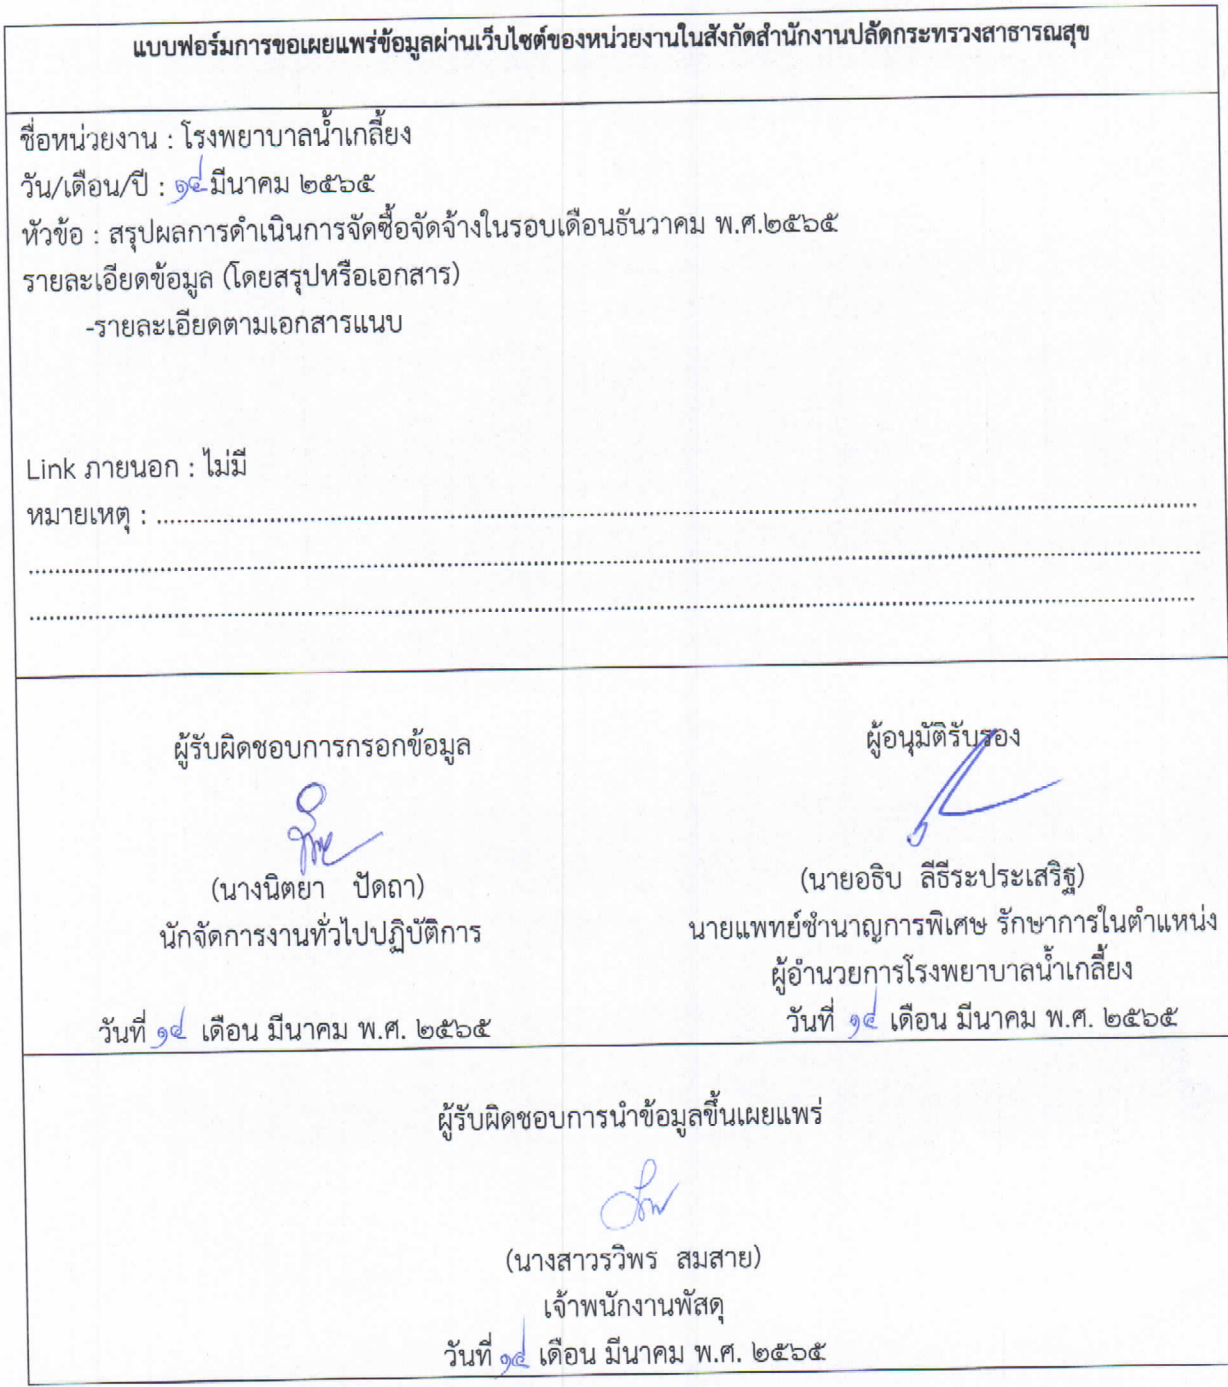 แบบฟอร์มการขอเผยแพร่ข้อมูลผ่านเว็บไซต์ของหน่วยงานในสังกัดสำนักงานปลัดกระทรวงสาธารณสุข
ชื่อหน่วยงาน : โรงพยาบาลน้ำเกลี้ยง
วัน/เดือน/ปี : ๑๔ มีนาคม ๒๕๖๕
หัวข้อ : สรุปผลการดำเนินการจัดซื้อจัดจ้างในรอบเดือนธันวาคม พ.ศ.๒๕๖๕
รายละเอียดข้อมูล (โดยสรุปหรือเอกสาร)
-รายละเอียดตามเอกสารแนบ
Link ภายนอก : ไม่มี
หมายเหตุ :
ผู้รับผิดชอบการกรอกข้อมูล
(นางนิตยา ปัดถา)
นักจัดการงานทั่วไปปฏิบัติการ
วันที่ ๑๔ เดือน มีนาคม พ.ศ. ๒๕๖๕
ผู้อนุมัติรับรอง
(นายอธิบ ลีธีระประเสริฐ)
นายแพทย์ชำนาญการพิเศษ รักษาการในตำแหน่ง
ผู้อำนวยการโรงพยาบาลน้ำเกลี้ยง
วันที่ ๑๔ เดือน มีนาคม พ.ศ. ๒๕๖๕
ผู้รับผิดชอบการนำข้อมูลขึ้นเผยแพร่
(นางสาวรวิพร สมสาย)
เจ้าพนักงานพัสดุ
วันที่ ๑๔ เดือน มีนาคม พ.ศ. ๒๕๖๕